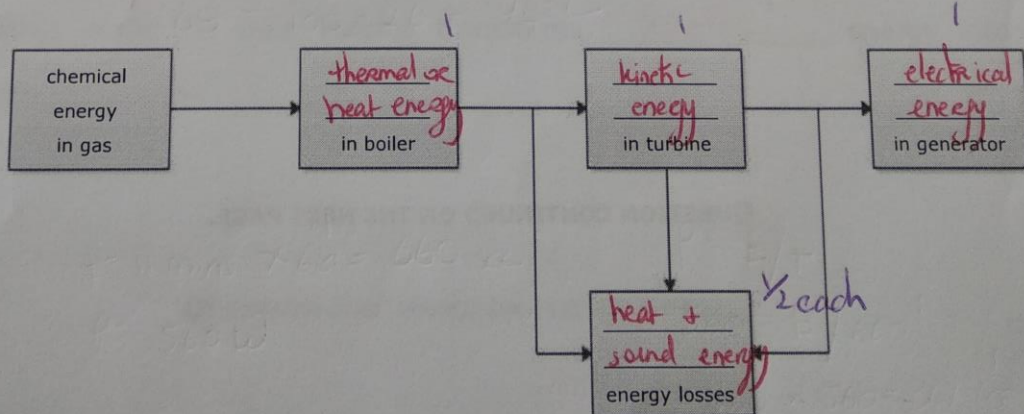 1
1
1
chemical
energy
in gas
thermal or
heat energy
in boiler
kinetic
energy
in turbine
electrical
energy
in generator
1/2 each
heat +
sound energy
energy losses